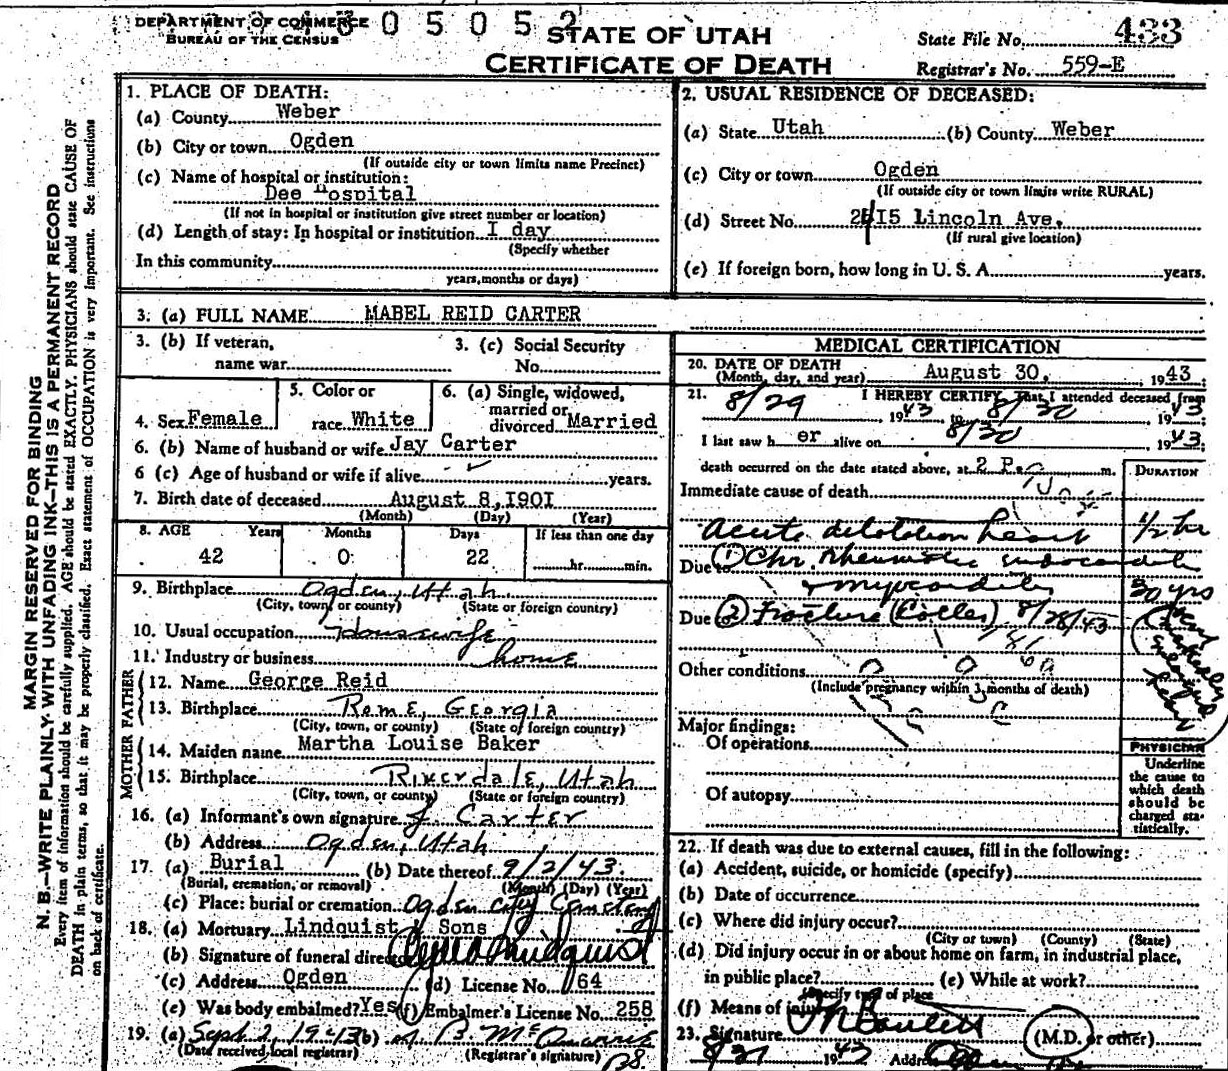 DEPARTMENT OF COMMERCE
BUREAU OF THE CENSUS
STATE OF UTAH
CERTIFICATE OF DEATH
State File No. 433
Registrar's No. 559-E
MARGIN RESERVED FOR BINDING
N. B.—WRITE PLAINLY WITH UNFADING INK—THIS IS A PERMANENT RECORD
Every item of information should be carefully supplied. AGE should be stated EXACTLY. PHYSICIANS should state CAUSE OF
DEATH in plain terms, so that it may be properly classified. Exact statement of OCCUPATION is very important. See instructions
on back of certificate.
1. PLACE OF DEATH:
(a) County Weber
(b) City or town Ogden
(If outside city or town limits name Precinct)
(c) Name of hospital or institution:
Dee Hospital
(If not in hospital or institution give street number or location)
(d) Length of stay: In hospital or institution I day
(Specify whether
In this community
years, months or days)
2. USUAL RESIDENCE OF DECEASED:
(a) State Utah (b) County Weber
(c) City or town Ogden
(If outside city or town limits write RURAL)
(d) Street No. I5 Lincoln Ave.
(If rural give location)
(e) If foreign born, how long in U. S. A. years.
3. (a) FULL NAME MABEL REID CARTER
3. (b) If veteran, name war
3. (c) Social Security No.
4. Sex Female
5. Color or race White
6. (a) Single, widowed, married or divorced Married
6. (b) Name of husband or wife Jay Carter
6 (c) Age of husband or wife if alive years.
7. Birth date of deceased August 8, I90I
(Month) (Day) (Year)
8. AGE Years Months Days If less than one day
42 0 22 hr. min.
9. Birthplace Ogden, Utah
(City, town, or county) (State or foreign country)
10. Usual occupation Housewife
11. Industry or business home
FATHER
12. Name George Reid
13. Birthplace Rome, Georgia
(City, town, or county) (State of foreign country)
MOTHER
14. Maiden name Martha Louise Baker
15. Birthplace Riverdale, Utah
(City, town, or county) (State or foreign country)
16. (a) Informant's own signature J Carter
(b) Address Ogden, Utah
17. (a) Burial (b) Date thereof 9/2/43
(Burial, cremation, or removal) (Month) (Day) (Year)
(c) Place: burial or cremation Ogden City Cemetery
18. (a) Mortuary Lindquist Sons
(b) Signature of funeral director
(c) Address Ogden (d) License No. 164
(e) Was body embalmed? Yes (f) Embalmer's License No. 258
19. (a) Sept 2, 1943 (b)
(Date received local registrar) (Registrar's signature)
MEDICAL CERTIFICATION
20. DATE OF DEATH
(Month, day, and year) August 30, 1943.
21. I HEREBY CERTIFY, That I attended deceased from
8/29 1943 to 8/30 1943
I last saw her alive on 8/30 1943.
death occurred on the date stated above, at 2 P. m.
DURATION
Immediate cause of death
Acute dilatation heart 1/2 hr
Due to (1) Chr. rheumatic endocarditis
+ myocarditis 30 yrs
Due (2) Fracture (Colles) 8/28/43
Other conditions
(Include pregnancy within 3 months of death)
Major findings:
Of operations
Of autopsy
PHYSICIAN
Underline
the cause to
which death
should be
charged sta-
tistically.
22. If death was due to external causes, fill in the following:
(a) Accident, suicide, or homicide (specify)
(b) Date of occurrence
(c) Where did injury occur?
(City or town) (County) (State)
(d) Did injury occur in or about home on farm, in industrial place,
in public place? (e) While at work?
(Specify type of place
(f) Means of injury
23. Signature (M.D. or other)
8/31 1943 Address Ogden